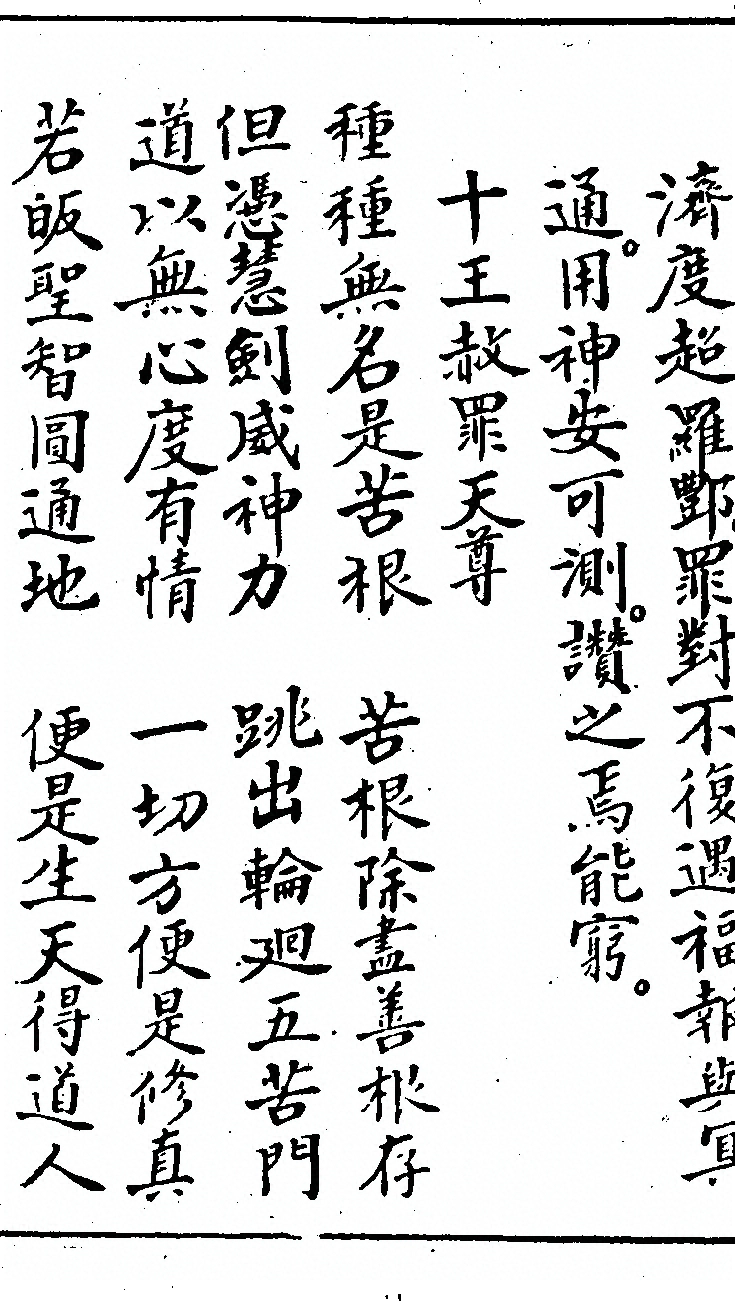 濟度超羅酆罪對不復遇福報與冥
通。用神安可測。讚之焉能窮。
十王赦罪天尊
種種無名是苦根 苦根除盡善根存
但憑慧劍威神力 跳出輪廻五苦門
道以無心度有情 一切方便是修真
若皈聖智圓通地 便是生天得道人